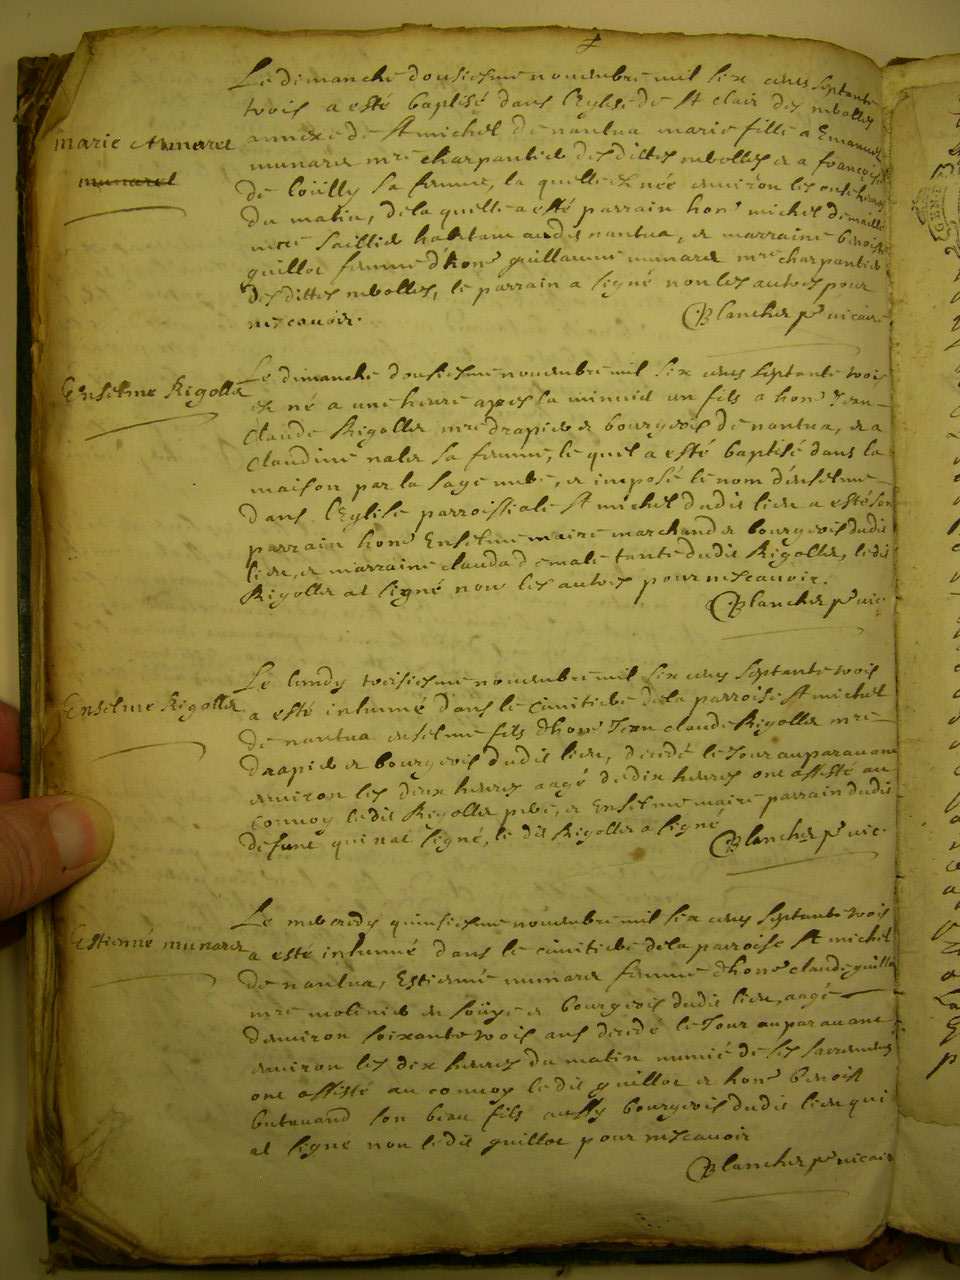 Le dimanche dousiesme novembre mil six cens septante
trois a esté baptisé dans l'Eglise de St clair des nbolles
marie Munaret
annexe de St michel de nantua marie fille a Emanuel
munaret
munaret mre charpantier desdittes nbolles et a francoise
de loüilly sa femme, la quelle est née environ les onse heures
du matin, de la quelle a esté parrain hone michel demaille
mre saillier habitant audit nantua, et marraine benoiste
guillot femme d'hone guillaume munaret mre charpantier
desdittes nbolles, le parrain a signé non les autres pour
nescavoir.
Blanchet pre vicaire
Enselme Rigollet
Le dimanche dousiesme novembre mil six cens septante trois
est né a une heure apres la minuict un fils a hone Jean
Claude Rigollet mre drapier et bourgeois de nantua, et a
Claudine nalet sa femme, le quel a esté baptisé dans la
maison par la sage mere, et imposé le nom d'enselme
dans l'Eglise parroissiale St michel dudit lieu a esté son
parrain hone Enselme maire marchand et bourgeois dudit
lieu, et marraine clauda demale tante dudit Rigollet, ledit
Rigollet at signé non les autres pour nescavoir.
Blanchet pre vic.
Enselme Rigollet
Le lundy treisiesme novembre mil six cens septante trois
a esté inhumé dans le cimitiere de la parroise St michel
de nantua enselme fils d'hone Jean claude Rigollet mre
drapier et bourgeois dudit lieu, decedé le Jour auparavant
environ les deux heures aagé de dix heures ont assisté au
convoy ledit Rigollet pere, et Enselme maire parrain dudit
defunt qui n'at signé, le dit Rigollet a signé
Blanchet pre vic.
Estienne munaret
Le mercredy quinsiesme novembre mil six cens septante trois
a esté inhumé dans le cimitiere de la parroise St michel
de nantua, Estienne munaret femme d'hone claude guillot
mre molinier en soüye et bourgeois dudit lieu, aagée
d'environ soixante trois ans decedé le Jour auparavant
environ les dix heures du matin munie de ses sacremens
ont assisté au convoy ledit guillot et hone benoist
butavand son beau fils aussy bourgeois dudit lieu qui
at signe non ledit guillot pour nescavoir
Blanchet pre vicaire